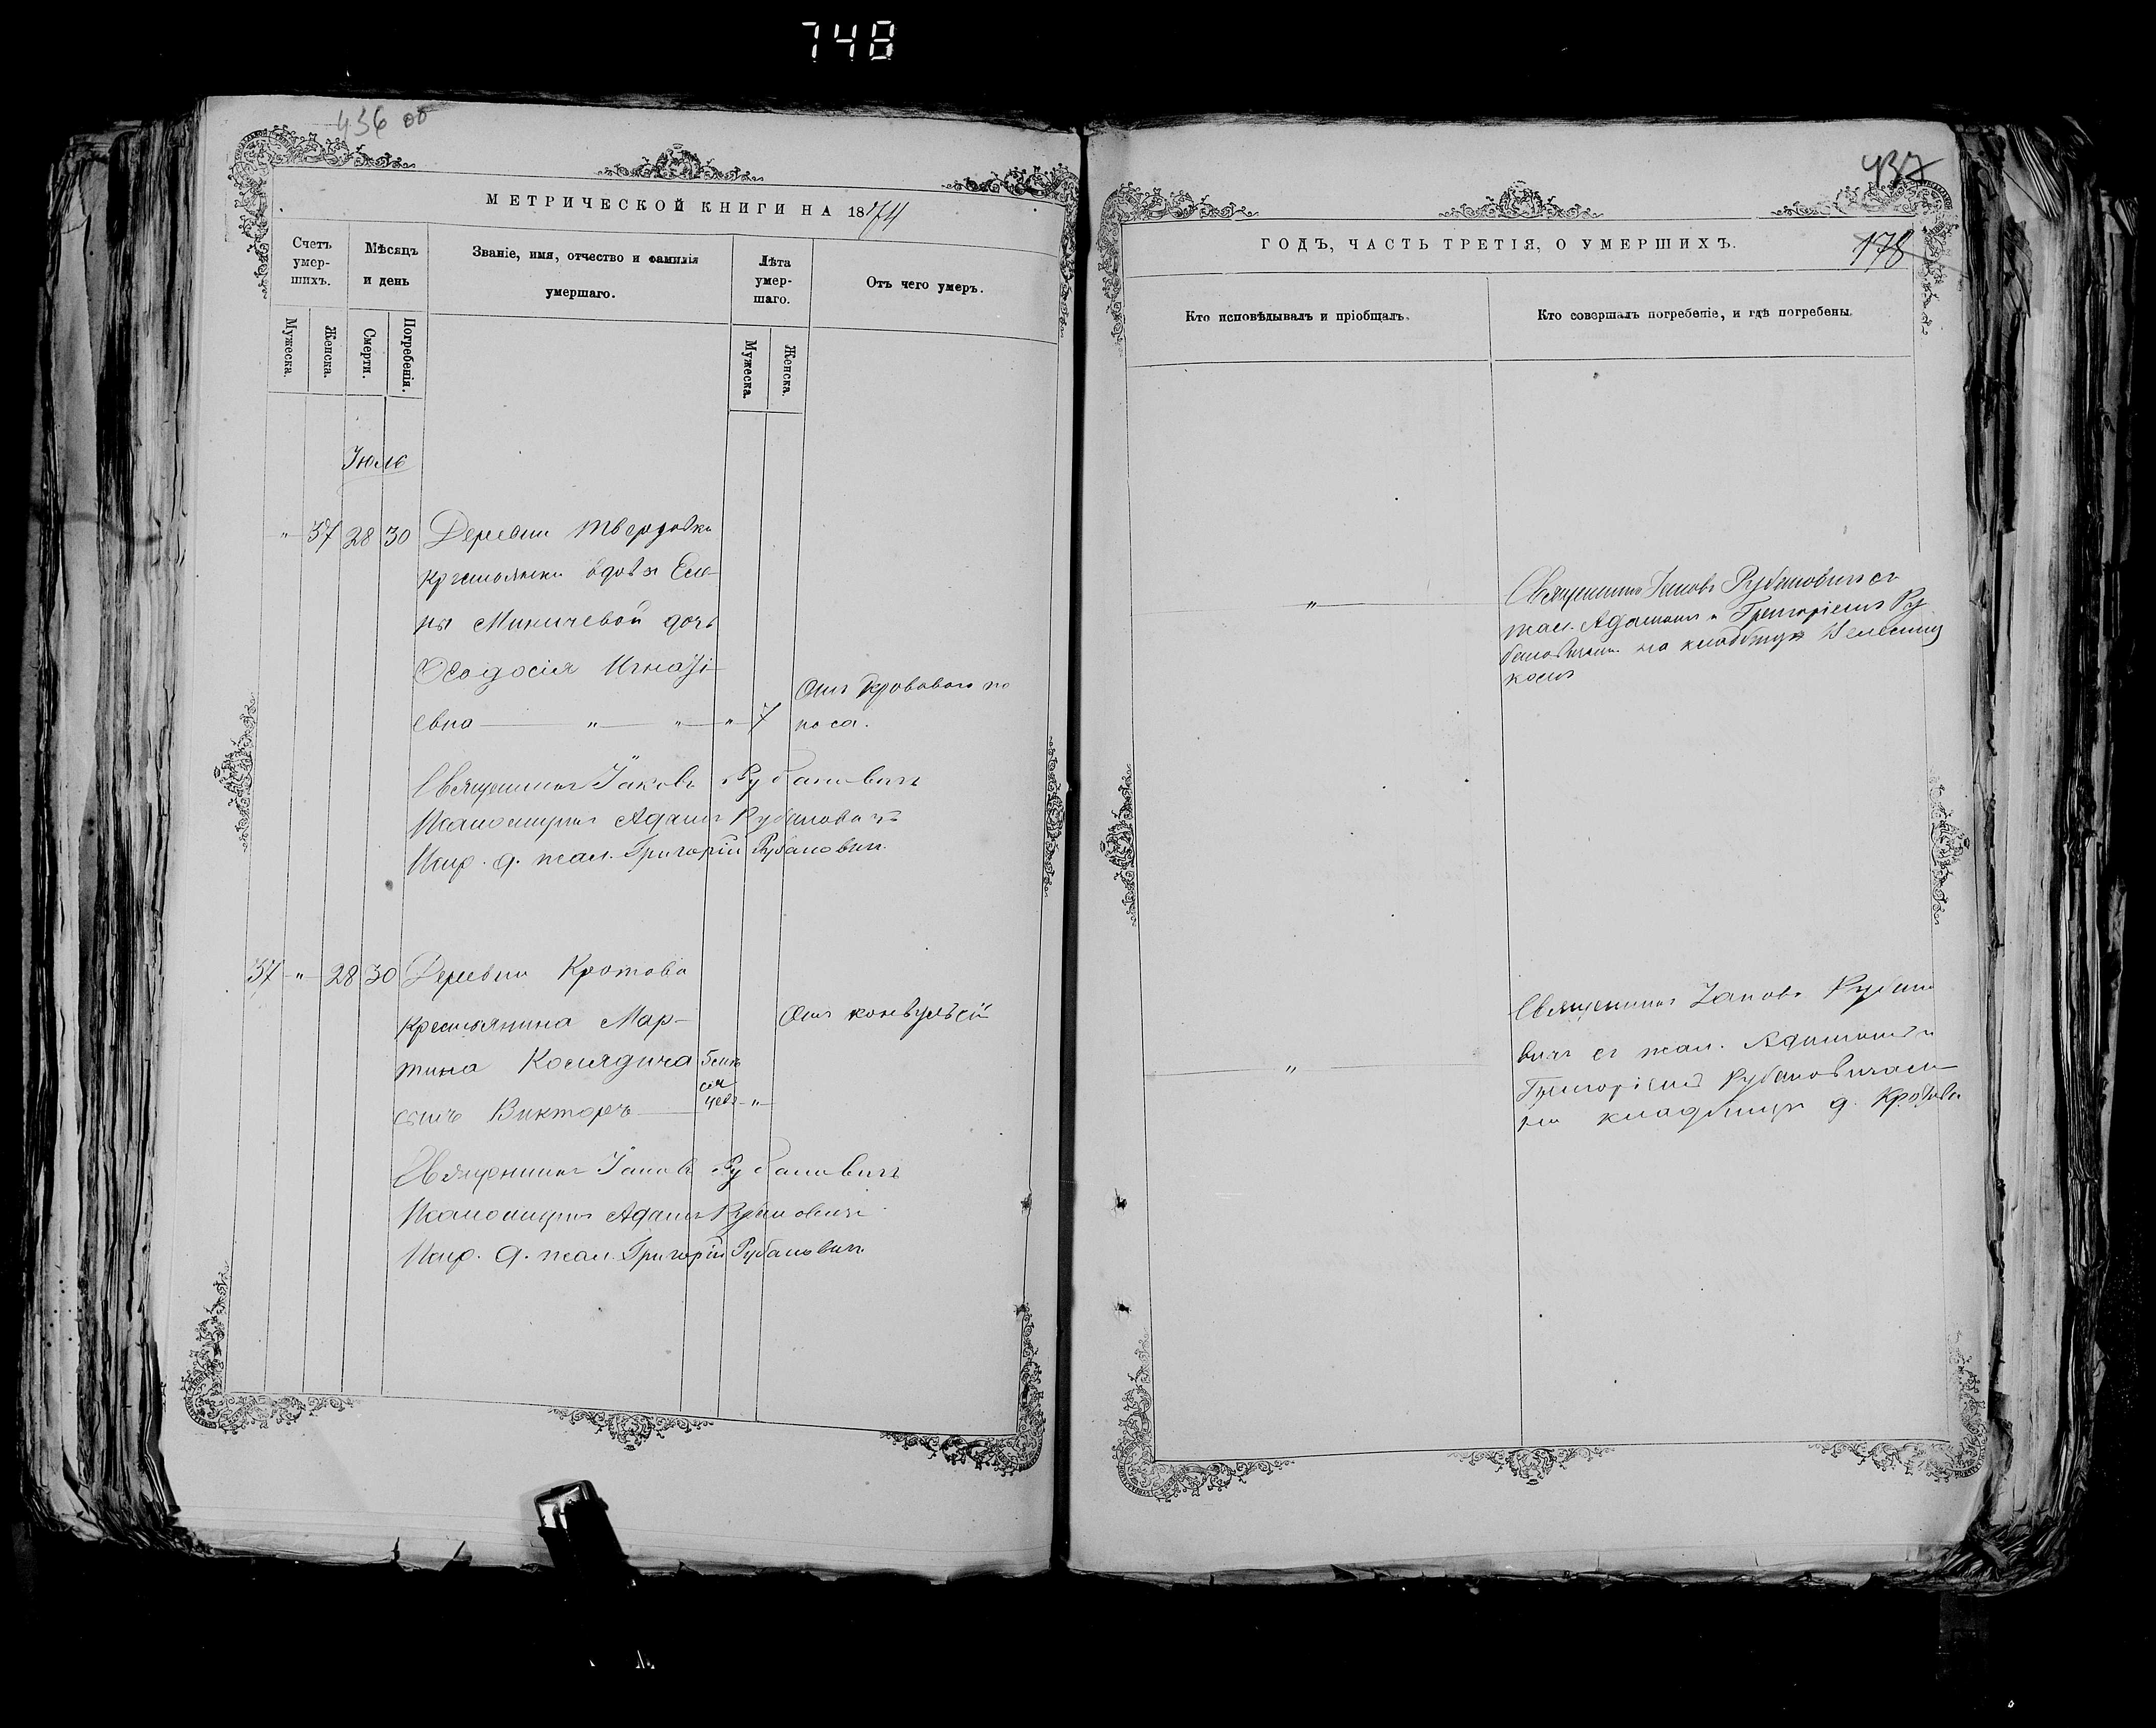 748
436 об
МЕТРИЧЕСКОЙ КНИГИ НА 1874
Счетъ умер-шихъ.
Мѣсяцъ и день
Званіе, имя, отчество и фамилія умершаго.
Лѣта умер-шаго.
Отъ чего умеръ.
Мужеска.
Женска.
Смерти.
Погребенія.
Мужеска.
Женска.
Іюль
" 37 28 30 Деревни Твердовки
крестьянки вдовы Еле-
ны Миничевой дочь
Ѳеодосія Игнаті-
евна " " " 7
Отъ кроваваго по
носа.
Священникъ Іаковъ Рубановичъ
Псаломщикъ Адамъ Рубановичъ
Испр. д. псал. Григорій Рубановичъ
37 " 28 30 Деревни Кротова
крестьянина Мар-
тина Колядича
сынъ Викторъ
"
Отъ конвульсій
Священникъ Іаковъ Рубановичъ
Псаломщикъ Адамъ Рубановичъ
Испр. д. псал. Григорій Рубановичъ
437
ГОДЪ, ЧАСТЬ ТРЕТІЯ, О УМЕРШИХЪ.
178
Кто исповѣдывалъ и пріобщалъ.
Кто совершалъ погребеніе, и гдѣ погребены.
"
Священникъ Іаковъ Рубановичъ съ
псал. Адамомъ и Григоріемъ Ру
бановичами на кладбищѣ
"
Священникъ Іаковъ Рубано
вичъ съ псал. Адамомъ и
Григоріемъ Рубановичами
на кладбищѣ д. Кротова